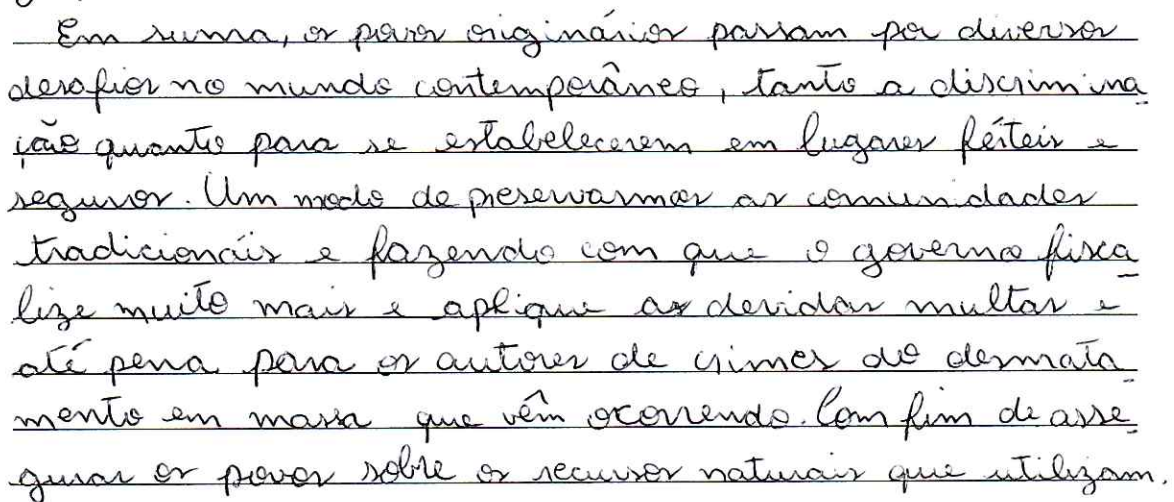 Em suma, os povos originários passam por diversos
desafios no mundo contemporâneo, tanto a discrimina
ção quanto para se estabelecerem em lugares férteis e
seguros. Um modo de preservarmos as comunidades
tradicionais e fazendo com que o governo fisca
lize muito mais e aplique as devidas multas e
até pena para os autores de crimes do desmata
mento em massa que vêm ocorrendo. Com fim de asse
gurar os povos sobre os recursos naturais que utilizam.